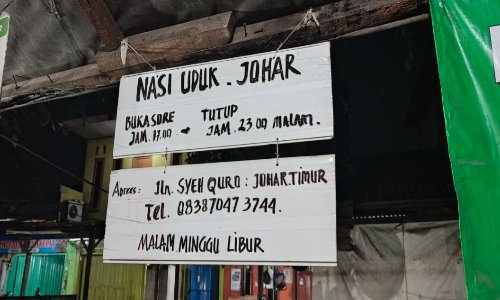 NASI UDUK. JOHAR
BUKA SORE TUTUP
JAM. 17.00 → JAM. 23.00 MALAM.
Adrees: Jln. SYEH QURO: JOHAR.TIMUR
TeL. 083870473744.
MALAM MINGGU LIBUR